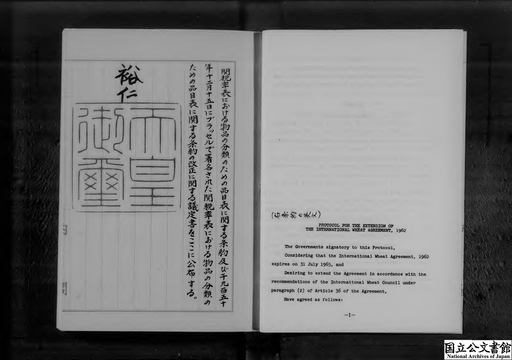 関税率表における物品の分類のための品目表に関する条約及び千九百五十
年十二月十五日にブラッセルで署名された関税率表における物品の分類の
ための品目表に関する条約の改正に関する議定書をここに公布する。
裕仁
天皇
御璽
PROTOCOL FOR THE EXTENSION OF
THE INTERNATIONAL WHEAT AGREEMENT, 1962
The Governments signatory to this Protocol,
Considering that the International Wheat Agreement, 1962
expires on 31 July 1965, and
Desiring to extend the Agreement in accordance with the
recommendations of the International Wheat Council under
paragraph (2) of Article 36 of the Agreement,
Have agreed as follows:
—1—
国立公文書館
National Archives of Japan